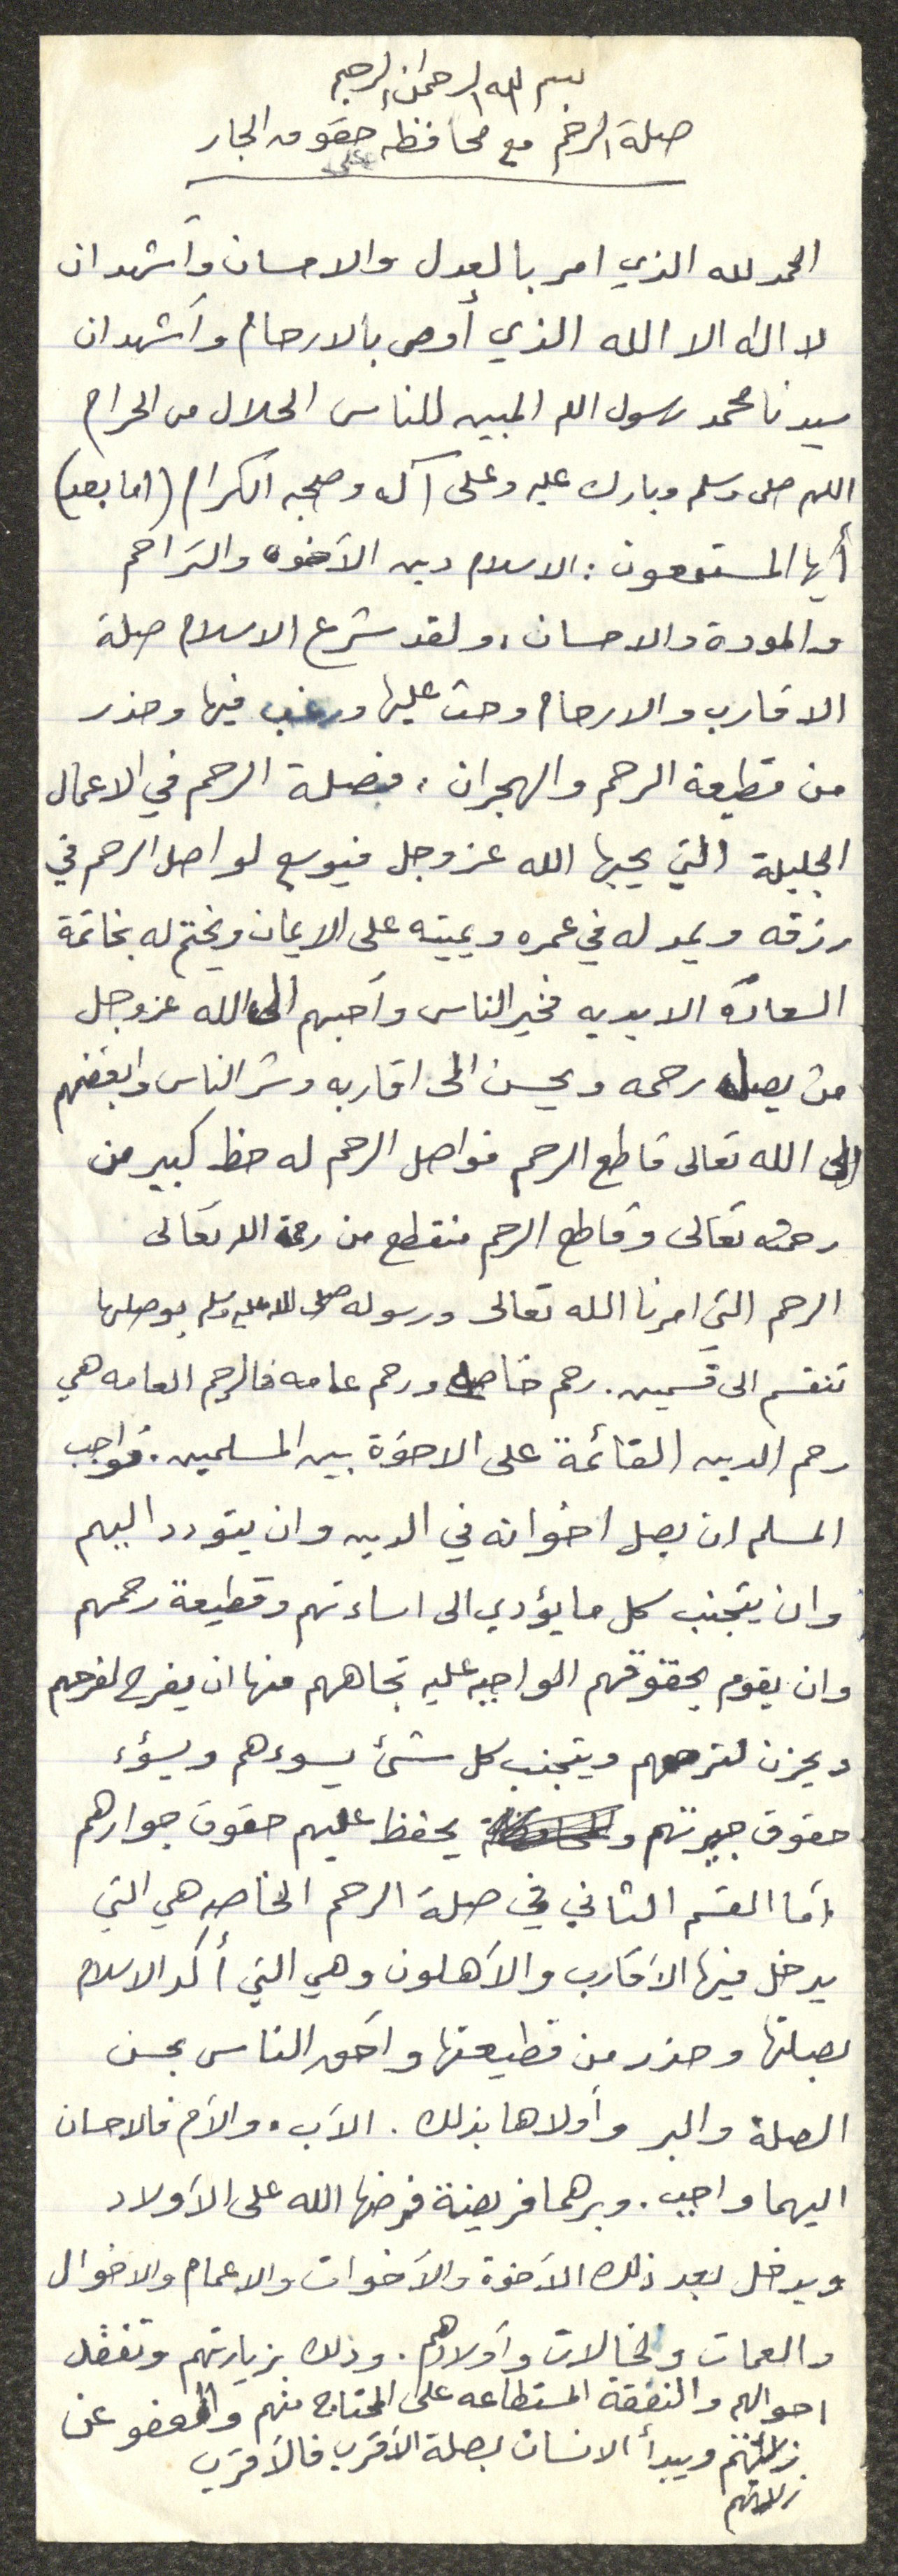 بسم الله الرحمن الرحيم
صلة الرحم مع محافظه على حقوق الجار
الحمد لله الذي امر بالعدل والاحسان وأشهد ان
لا اله الا الله الذي أوصى بالارحام وأشهد ان
سيدنا محمد رسول الله المبين للناس الحلال من الحرام
اللهم صلى وسلم وبارك عليه وعلى آله وصحبه الكرام (اما بعد)
أيها المستمعون: الاسلام دين الأخوه والتراحم
والمودة والاحسان، ولقد شرع الاسلام صلة
الاقارب والارحام وحث عليها ورغب فيها وحذر
من قطيعة الرحم والهجران، فصلة الرحم في الاعمال
الجليلة التي يحبها الله عز وجل فيوسع لواصل الرحم في
رزقه ويمد له في عمره ويميته على الايمان ويختم له بخاتمة
السعادة الابديه فخير الناس وأحبهم الى الله عز وجل
من يصل رحمه ويحسن الى اقاربه وشر الناس وابغضهم
الى الله تعالى قاطع الرحم فواصل الرحم له حظ كبير من
رحمته تعالى وقاطع الرحم منقطع من رحمة الله تعالى
الرحم التي امرنا الله تعالى ورسوله صلى الله عليه وسلم بوصلها
تنقسم الى قسمين. رحم خاصه ورحم عامه فالرحم العامه هي
رحم الدين القائمة على الاخوة بين المسلمين. فواجب
المسلم ان يصل اخوانه في الدين وان يتودد اليهم
وان يتجنب كل ما يؤدي الى اساءتهم وقطيعة رحمهم
وان يقوم بحقوقهم الواجبه عليه تجاههم منها ان يفرح لفرحهم
ويحزن لترحهم ويتجنب كل شئ يسوءهم ويسؤء
حقوق جيرتهم و يحفظ عليهم حقوق جوارهم
أما القسم الثاني في صلة الرحم الخاصه هي التي
يدخل فيها الأقارب والأهلون وهي التي أكد الاسلام
بصلتها وحذر من قطيعتها وأحق الناس بحسن
الصلة والبر وأولاها بذلك. الأب. والأم فالاحسان
اليهما واجب. وبرهما فريضة فرضها الله على الأولاد
ويدخل بعد ذلك الأخوة والأخوات والاعمام والاخوال
والعمات والخالات وأولادهم. وذلك بزيارتهم وتفقد
احوالهم والنفقة المستطاعه على المحتاج منهم والعفو عن
زلاتهم ويبدأ الانسان بصلة الأقرب فالأقرب
زلاتهم